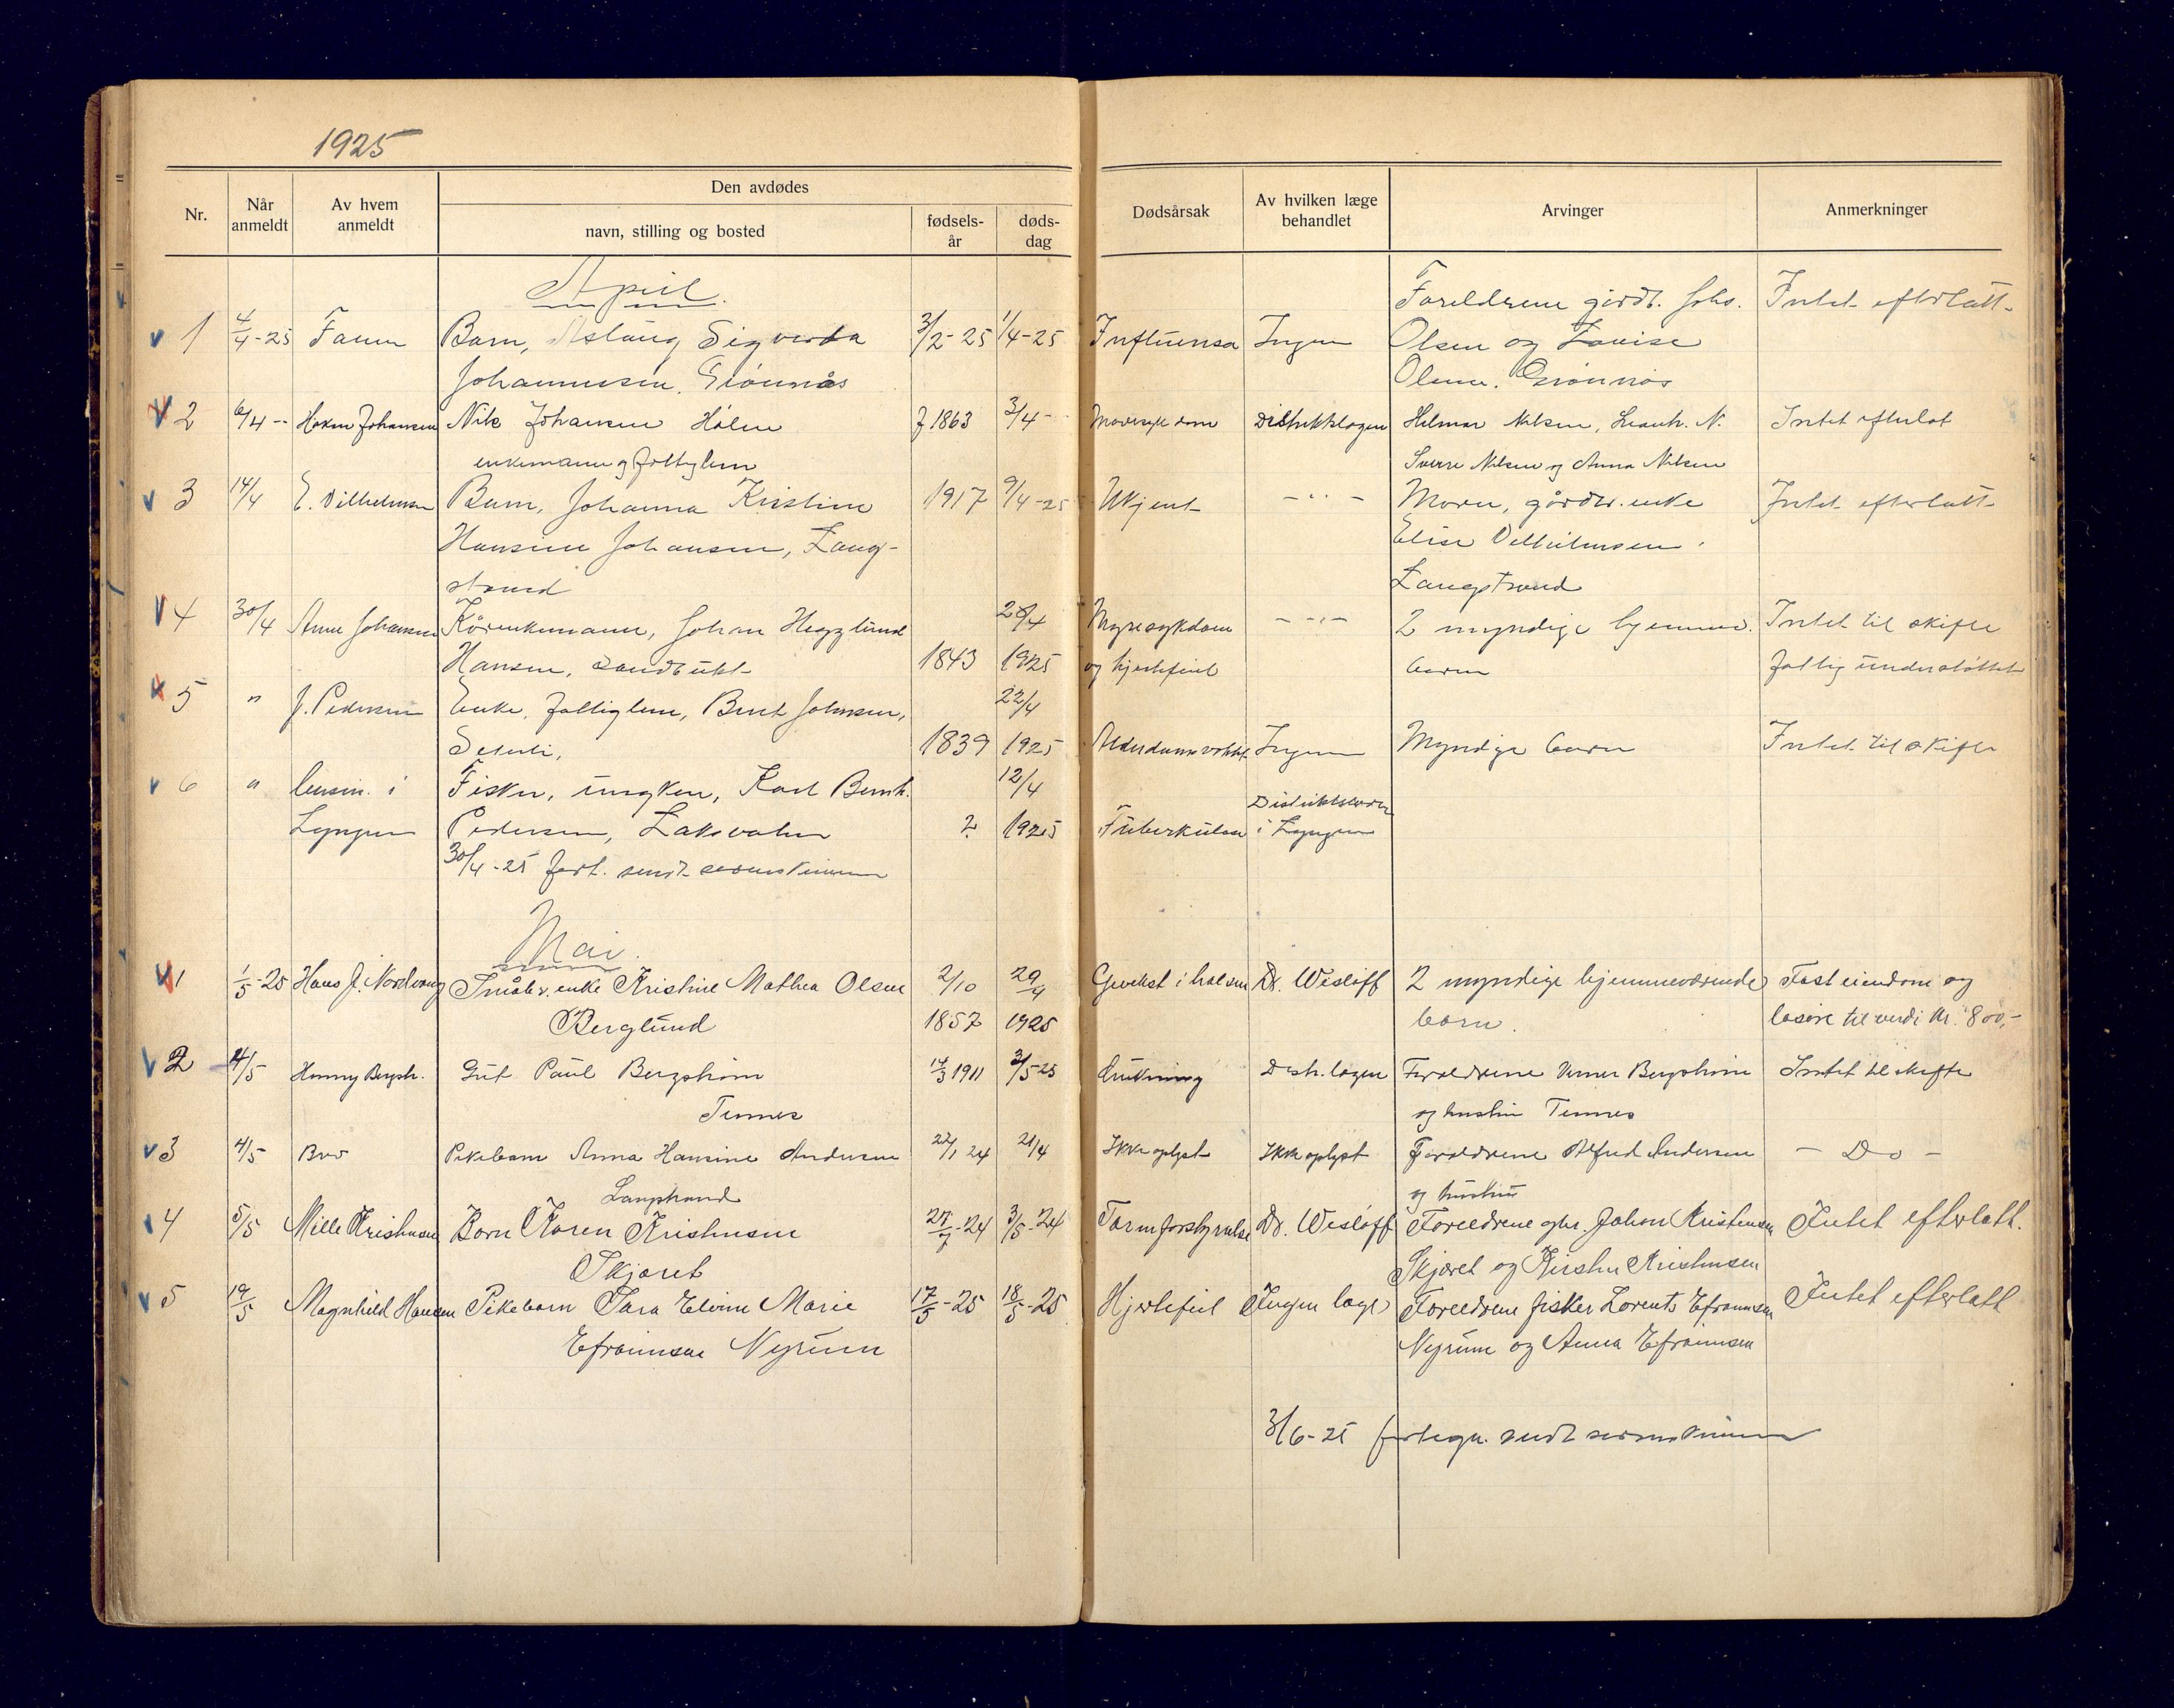 1925
Nr.
Når anmeldt
Av hvem anmeldt
Den avdødes
navn, stilling og bosted
fødsels-år
døds-dag
Dødsårsak
Av hvilken læge behandlet
Arvinger
Anmerkninger
April.
Foreldrene Johs. Intet efterlatt
1 4/4-25 Faren Barn, Aslaug Sigvarda 3/2-25 1/4-25 Influensa Ingen Olsen og Lovise
Johannessen, Grønnås Olsen. Grønnås
2 6/4 -- Hakon Johansen Nils Johansen f 1863 3/4- Mavesykdom Distriktslægen Helmar Nilsen, N. Intet efterlat
enkemann og fattiglem Sverre Nilsen og Anna Nilsen
3 14/4 E. Vilhelmsen Barn, Johanna Kristine 1917 9/4-25 Ukjent - " - Moren, gårdbr. enke Intet efterlatt
Hansine Johansen, Lang- Elise Vilhelmsen
strand Langstrand
4 30/4 Anne Johansen Kårenkemann, Johan Hegglund 28/4 Nyresykdom - " - 2 myndige hjemmev. Intet til skifte
Hansen, Sandbukt 1843 1925 og hjertefeil barn fattig understøttet
5 " J. Pedersen Enke, fattiglem, Berit Johnsen, 22/4
1839 1925 Ingen Myndige barn Intet til skifte
6 " i Fisker, ungkar, Karl Bernh. 12/4 Distriktslægen
Lyngen Pedersen, Laksvatn ? 1925 Tuberkulose i Lyngen
30/4-25 fort. sendt sorenskriveren
Mai.
1 1/5-25 Hans J. Nordvang Småbr. enke Kristine Mathea Olsen 2/10 29/4 Gevekst i halsen Dr. Wesløff 2 myndige hjemmeværende Fast eiendom og
Berglund 1857 1925 barn. løsøre til verdi kr. 800,-
2 4/5 Henny Bergstr. Gut Paul Bergstrøm 14/3 1911 3/5-25 Drukning Distr.lægen Foreldrene Verner Bergstrøm Intet til skifte
Tennes og hustru Tennes
3 4/5 Pikebarn Anna Hansine Andersen 22/1 24 21/4 Ikke oplyst Ikke oplyst Foreldrene Alfred Andersen - Do -
Langstrand og hustru
4 5/5 Mille Kristensen Barn Karen Kristensen 27/7-24 3/5-24 Tarmforstyrrelse Dr. Wesløff Foreldrene Johan Kristensen Intet efterlatt.
Skjæret Skjæret og Kirsten Kristensen
5 19/5 Magnhild Hansen Pikebarn Sara Elvine Marie 17/5-25 18/5-25 Hjertefeil Ingen læge Foreldrene fisker Lorents Efraimsen Intet efterlatt
Efraimsen Nyrum Nyrum og Anna Efraimsen
3/6-25 fortegn. sendt sorenskriveren